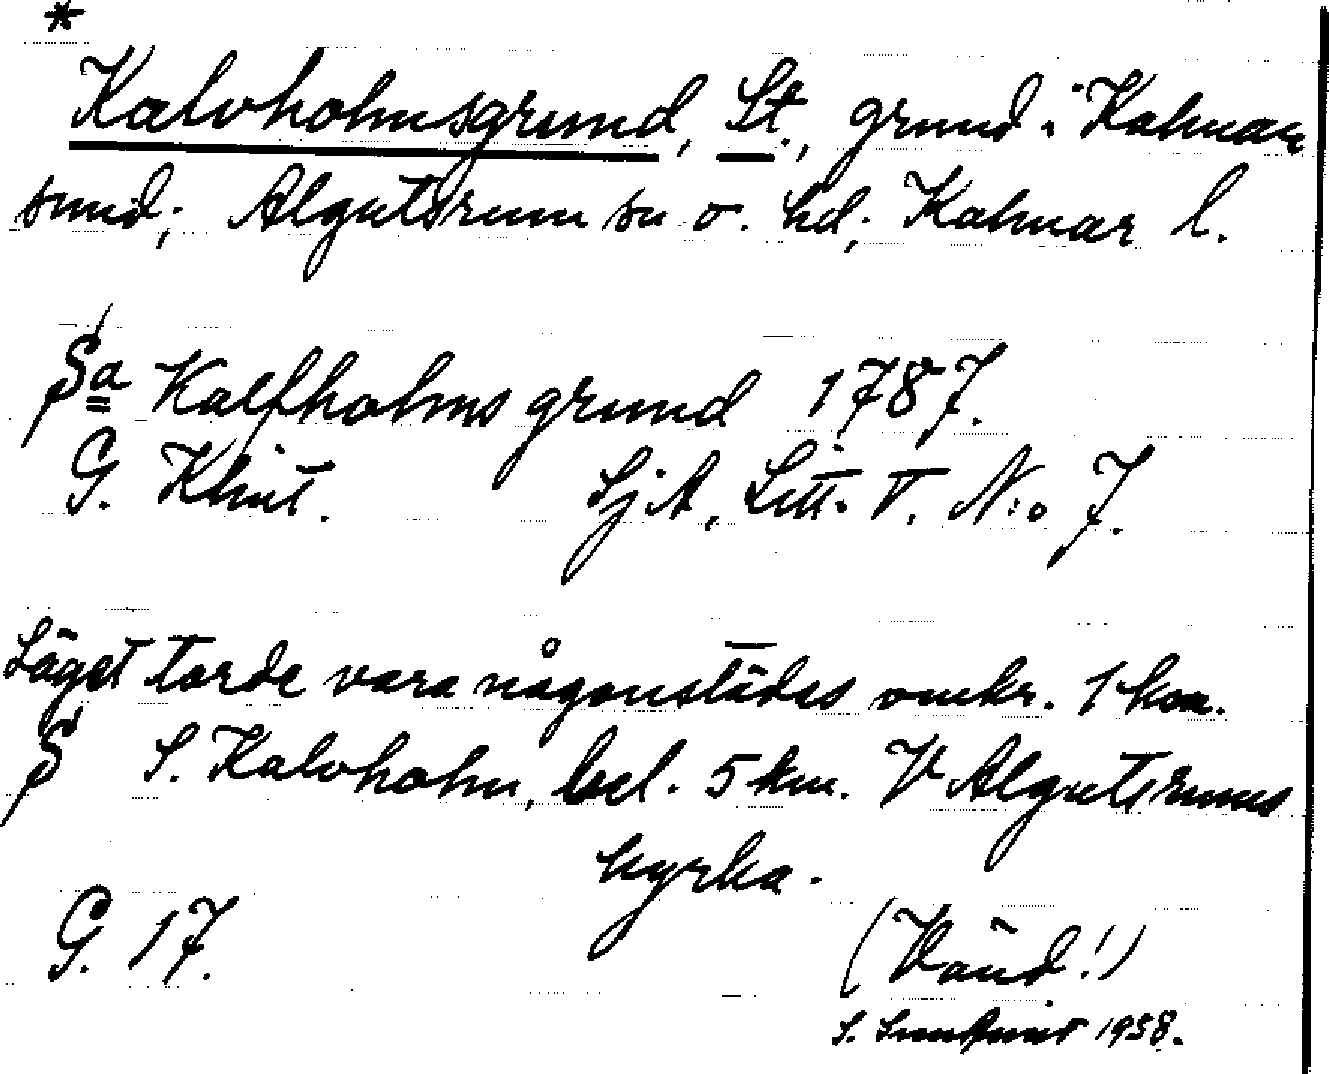 *
Kalvholmsgrund, St., grund i Kalmar
sund; Algutsrum sn o. hd; Kalmar l.
§a Kalfholms grund 1787.
G. Klint. SjA, Litt. V. N:o 7.
Läget torde vara någonstädes omkr. 1 km.
§ S. Kalvholm, bel. 5 km. V Algutsrums
kyrka.
G. 17.
(Vänd!)
S. 1938.